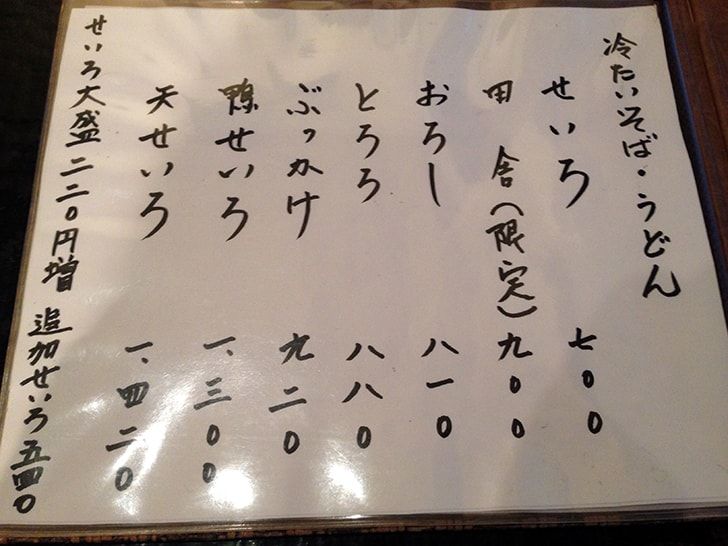 冷たいそば・うどん
せいろ 七〇〇
田舎(限定) 九〇〇
おろし 八一〇
とろろ 八八〇
ぶっかけ 九二〇
鴨せいろ 一、三〇〇
天せいろ 一、四二〇
せいろ大盛二二〇円増 追加せいろ五四〇